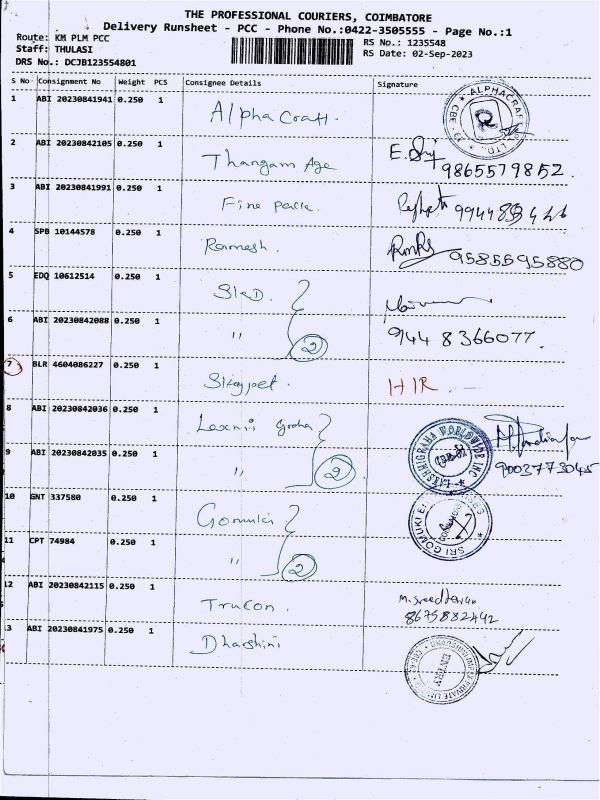 THE PROFESSIONAL COURIERS, COIMBATORE
Delivery Runsheet - PCC - Phone No.:0422-3505555 - Page No.:1
Route: KM PLM PCC RS No.: 1235548
Staff: THULASI RS Date: 02-Sep-2023
DRS No.: DCJB123554801
S No Consignment No Weight PCS Consignee Details Signature
1 ABI 20230841941 0.250 1 Alpha Craft.
2 ABI 20230842105 0.250 1 Thangam Age
9865579852.
3 ABI 20230841991 0.250 1 Fine pack.
4 SPB 10144578 0.250 1 Ramesh.
9585595880
5 EDQ 10612514 0.250 1
6 ABI 20230842088 0.250 1 " 2 9448366077.
7 BLR 4604086227 0.250 1
8 ABI 20230842036 0.250 1 Laxmi Graha
9 ABI 20230842035 0.250 1 " 2 9003773045
10 GNT 337580 0.250 1 Gomuki
SRI GOMUKI
11 CPT 74984 0.250 1 " 2
12 ABI 20230842115 0.250 1 Trucon.
8675882442
3 ABI 20230841975 0.250 1 Dharshini
ENTRY